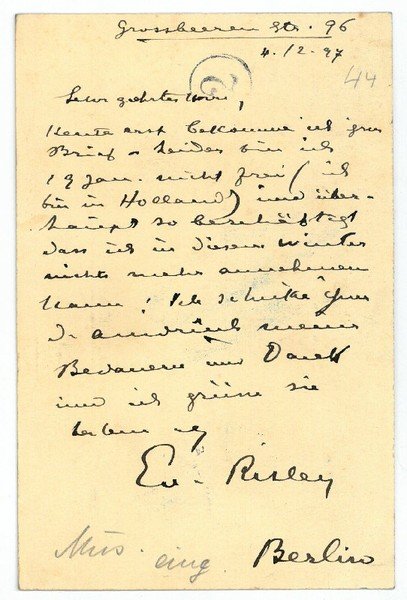 Grossbeeren Str. 96
4./2.97
44
2
Sehr geehrter Herr,
heute erst bekomme ich Ihren
Brief - Leider bin ich
19 Jan. nicht frei (ich
bin in Holland) und über-
haupt so beschäftigt
dass ich in diesem Winter
nichts mehr annehmen
kann! Ich schicke Ihnen
meine
Bedauern und Dank
und ich grüsse sie
Risley
Berlin
Mus. eing.